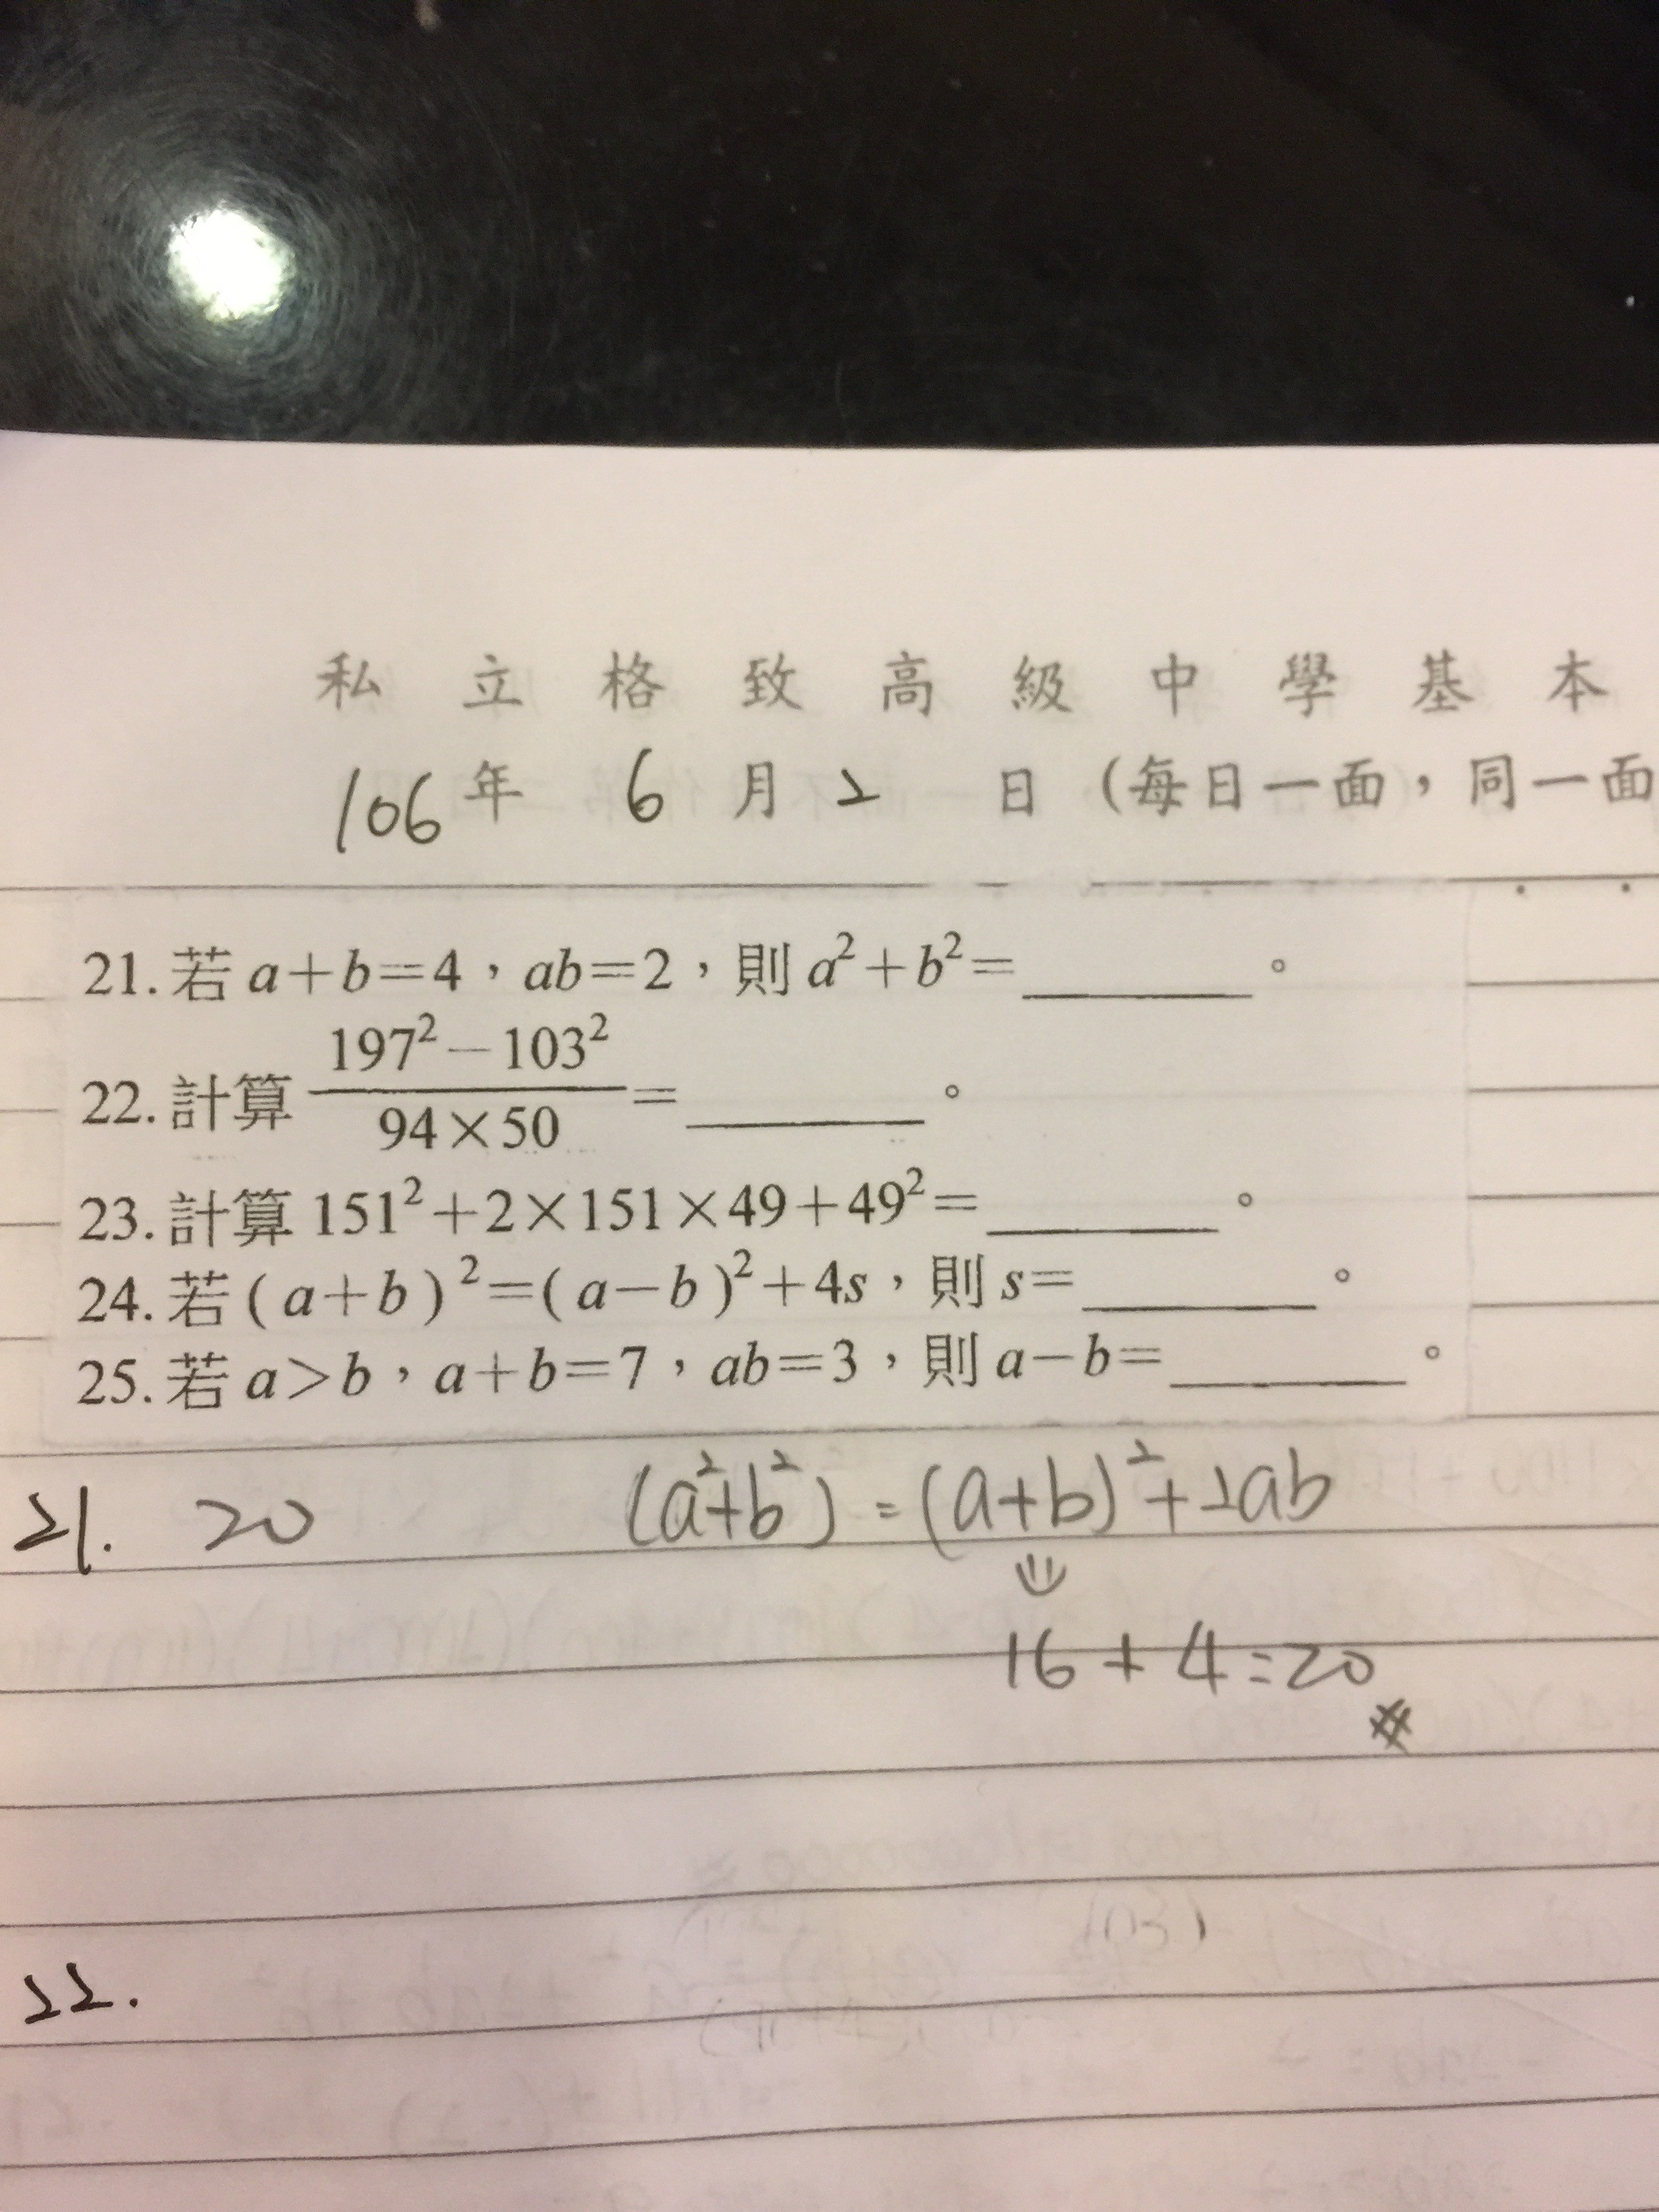 私立格致高級中學基本
106年 6月2日(每日一面,同一面
21.若a+b=4,ab=2,則a²+b²=______。
22.計算 197²-103² / 94×50 =______。
23.計算151²+2×151×49+49²=______。
24.若(a+b)²=(a-b)²+4s,則s=______。
25.若a>b,a+b=7,ab=3,則a-b=______。
21. 20 (a²+b²)=(a+b)²+2ab
16+4=20
22.